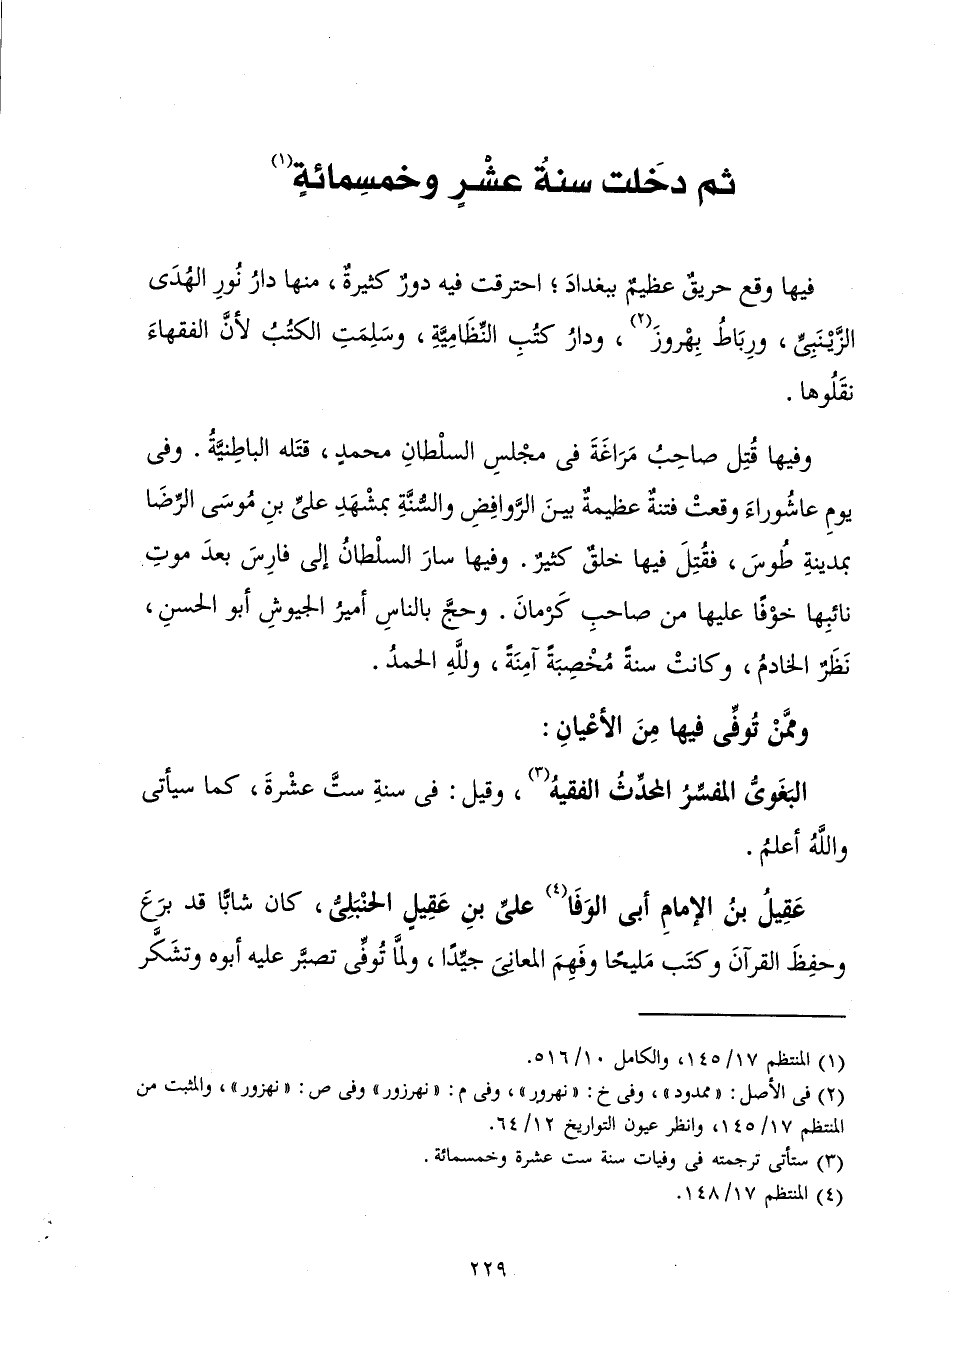 ثم دخَلت سنةُ عشْرٍ وخمسِمائةٍ(١)
فيها وقع حريقٌ عظيمٌ ببغدادَ ؛ احترقت فيه دورٌ كثيرةٌ ، منها دارُ نُورِ الهُدَى
الزَّيْنَبِىِّ ، ورِبَاطُ بِهْروزَ(٢) ، ودارُ كتُبِ النِّظَامِيَّةِ ، وسَلِمَتِ الكتُبُ لأنَّ الفقهاءَ
نقَلُوها .
وفيها قُتِل صاحِبُ مَرَاغَةَ فى مجْلسِ السلْطانِ محمدٍ ، قتَله الباطِنيَّةُ . وفى
يومِ عاشُوراءَ وقعتْ فتنةٌ عظيمةٌ بينَ الرَّوافِضِ والسُّنَّةِ بمشْهَدِ علىِّ بنِ مُوسَى الرِّضَا
بمدينةِ طُوسَ ، فقُتِلَ فيها خلقٌ كثيرٌ . وفيها سارَ السلْطانُ إلى فارِسَ بعدَ موتِ
نائبِها خوْفًا عليها من صاحبِ كَرْمانَ . وحجَّ بالناسِ أميرُ الجيوشِ أبو الحسنِ ،
نَظَرٌ الخادمُ ، وكانتْ سنةً مُخْصِبَةً آمِنَةً ، وللَّهِ الحمدُ .
وممَّنْ تُوفِّى فيها مِنَ الأعْيانِ :
البَغَوىُّ المفسِّرُ المحدِّثُ الفقيهُ(٣) ، وقيل : فى سنةِ ستَّ عشْرةَ ، كما سيأتى
واللَّهُ أعلمُ .
عَقِيلُ بنُ الإمامِ أبى الوَفَا(٤) علىِّ بنِ عَقِيلٍ الحنْبَلِىُّ ، كان شابًّا قد برَعَ
وحفِظَ القرآنَ وكتَب مَليحًا وفَهِمَ المعانِىَ جيِّدًا ، ولمَّا تُوفِّى تصبَّر عليه أبوه وتشَكَّر
(١) المنتظم ١٧/ ١٤٥، والكامل ١٠/ ٥١٦.
(٢) فى الأصل : « ممدود » ، وفى خ : « نهرور » ، وفى م : « نهرزور » وفى ص : « نهزور » ، والمثبت من
المنتظم ١٧/ ١٤٥، وانظر عيون التواريخ ١٢/ ٦٤.
(٣) ستأتى ترجمته فى وفيات سنة ست عشرة وخمسمائة .
(٤) المنتظم ١٧/ ١٤٨.
٢٢٩